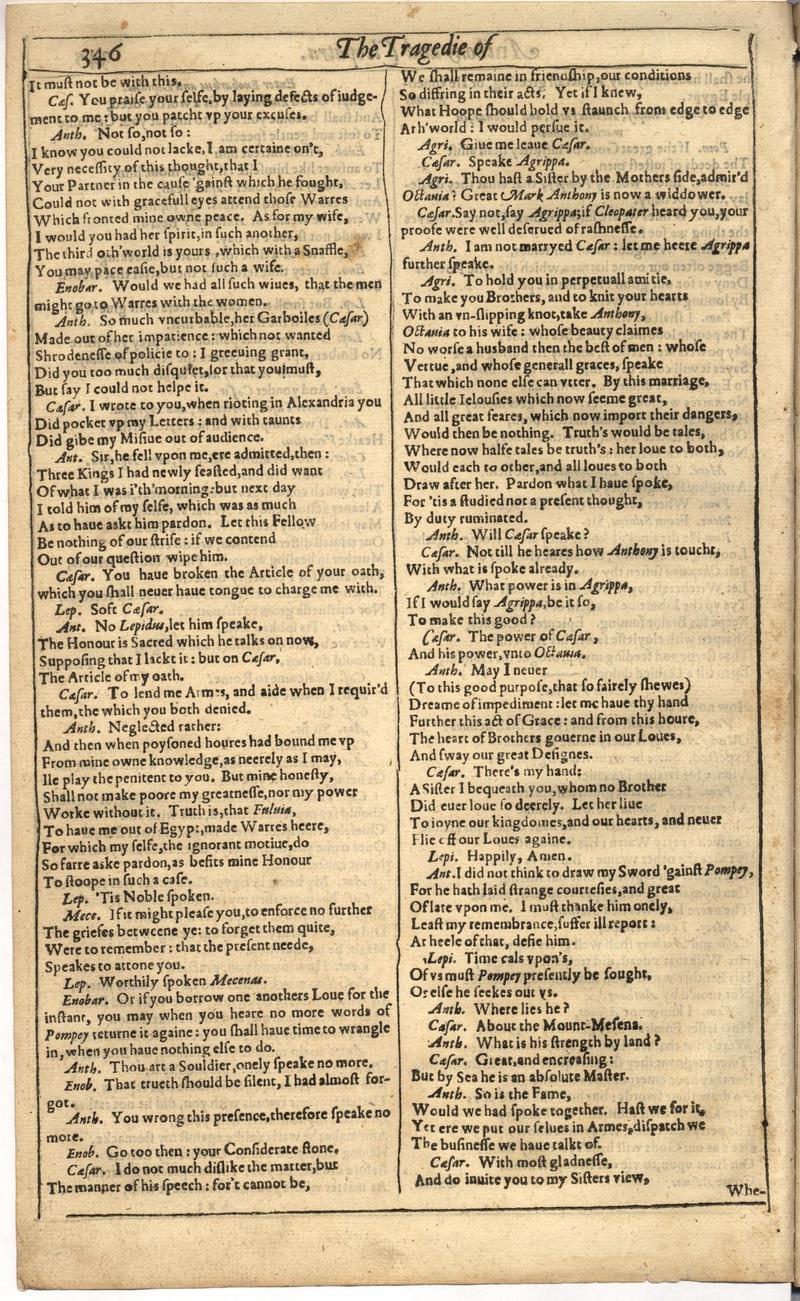 346
The Tragedie of
It must not be with this.
Cæs. You praise your selfe, by laying defects of iudge-
ment to me: but you patcht vp your excuses.
Anth. Not so, not so:
I know you could not lacke, I am certaine on't,
Very necessity of this thought, that I
Your Partner in the cause 'gainst which he fought,
Could not with gracefull eyes attend those Warres
Which fronted mine owne peace. As for my wife,
I would you had her spirit, in such another,
The third oth'world is yours, which with a Snaffle,
You may pace easie, but not such a wife.
Enobar. Would we had all such wiues, that the men
might go to Warres with the women.
Anth. So much vncurbable, her Garboiles (Cæsar)
Made out of her impatience: which not wanted
Shrodenesse of policie to: I greeuing grant,
Did you too much disquiet, for that you must,
But say I could not helpe it.
Cæsar. I wrote to you, when rioting in Alexandria you
Did pocket vp my Letters: and with taunts
Did gibe my Misiue out of audience.
Ant. Sir, he fell vpon me, ere admitted, then:
Three Kings I had newly feasted, and did want
Of what I was i'th'morning: but next day
I told him of my selfe, which was as much
As to haue askt him pardon. Let this Fellow
Be nothing of our strife: if we contend
Out of our question wipe him.
Cæsar. You haue broken the Article of your oath,
which you shall neuer haue tongue to charge me with.
Lep. Soft Cæsar.
Ant. No Lepidus, let him speake,
The Honour is Sacred which he talks on now,
Supposing that I lackt it: but on Cæsar,
The Article of my oath.
Cæsar. To lend me Armes, and aide when I requir'd
them, the which you both denied.
Anth. Neglected rather:
And then when poysoned houres had bound me vp
From mine owne knowledge, as neerely as I may,
Ile play the penitent to you. But mine honesty,
Shall not make poore my greatnesse, nor my power
Worke without it. Truth is, that Fuluia,
To haue me out of Egypt, made Warres heere,
For which my selfe, the ignorant motiue, do
So farre aske pardon, as befits mine Honour
To stoope in such a case.
Lep. 'Tis Noble spoken.
Mece. If it might please you, to enforce no further
The griefes betweene ye: to forget them quite,
Were to remember: that the present neede,
Speakes to attone you.
Lep. Worthily spoken Mecenas.
Enobar. Or if you borrow one anothers Loue for the
instant, you may when you heare no more words of
Pompey returne it againe: you shall haue time to wrangle
in, when you haue nothing else to do.
Anth. Thou art a Souldier, onely speake no more.
Enob. That trueth should be silent, I had almost for-
got.
Anth. You wrong this presence, therefore speake no
more.
Enob. Go too then: your Considerate stone.
Cæsar. I do not much dislike the matter, but
The manner of his speech: for't cannot be,
We shall remaine in friendship, our conditions
So diffring in their acts. Yet if I knew,
What Hoope should hold vs staunch from edge to edge
Ath'world: I would persue it.
Agri. Giue me leaue Cæsar.
Cæsar. Speake Agrippa.
Agri. Thou hast a Sister by the Mothers side, admir'd
Octauia? Great Mark Anthony is now a widdower.
Cæsar. Say not, say Agrippa; if Cleopater heard you, your
proofe were well deserued of rashnesse.
Anth. I am not marryed Cæsar: let me heere Agrippa
further speake.
Agri. To hold you in perpetuall amitie,
To make you Brothers, and to knit your hearts
With an vn-slipping knot, take Anthony,
Octauia to his wife: whose beauty claimes
No worse a husband then the best of men: whose
Vertue, and whose generall graces, speake
That which none else can vtter. By this marriage,
All little Ielousies which now seeme great,
And all great feares, which now import their dangers,
Would then be nothing. Truth's would be tales,
Where now halfe tales be truth's: her loue to both,
Would each to other, and all loues to both
Draw after her. Pardon what I haue spoke,
For 'tis a studied not a present thought,
By duty ruminated.
Anth. Will Cæsar speake?
Cæsar. Not till he heares how Anthony is toucht,
With what is spoke already.
Anth. What power is in Agrippa,
If I would say Agrippa, be it so,
To make this good?
Cæsar. The power of Cæsar,
And his power, vnto Octauia.
Anth. May I neuer
(To this good purpose, that so fairely shewes)
Dreame of impediment: let me haue thy hand
Further this act of Grace: and from this houre,
The heart of Brothers gouerne in our Loues,
And sway our great Designes.
Cæsar. There's my hand:
A Sister I bequeath you, whom no Brother
Did euer loue so deerely. Let her liue
To ioyne our kingdomes, and our hearts, and neuer
Flie off our Loues againe.
Lepi. Happily, Amen.
Ant. I did not think to draw my Sword 'gainst Pompey,
For he hath laid strange courtesies, and great
Of late vpon me. I must thanke him onely,
Least my remembrance, suffer ill report:
At heele of that, defie him.
Lepi. Time cals vpon's,
Of vs must Pompey presently be sought,
Or else he seekes out vs.
Anth. Where lies he?
Cæsar. About the Mount-Mesena.
Anth. What is his strength by land?
Cæsar. Great, and encreasing:
But by Sea he is an absolute Master.
Anth. So is the Fame,
Would we had spoke together. Hast we for it,
Yet ere we put our selues in Armes, dispatch we
The businesse we haue talkt of.
Cæsar. With most gladnesse,
And do inuite you to my Sisters view,
Whe-